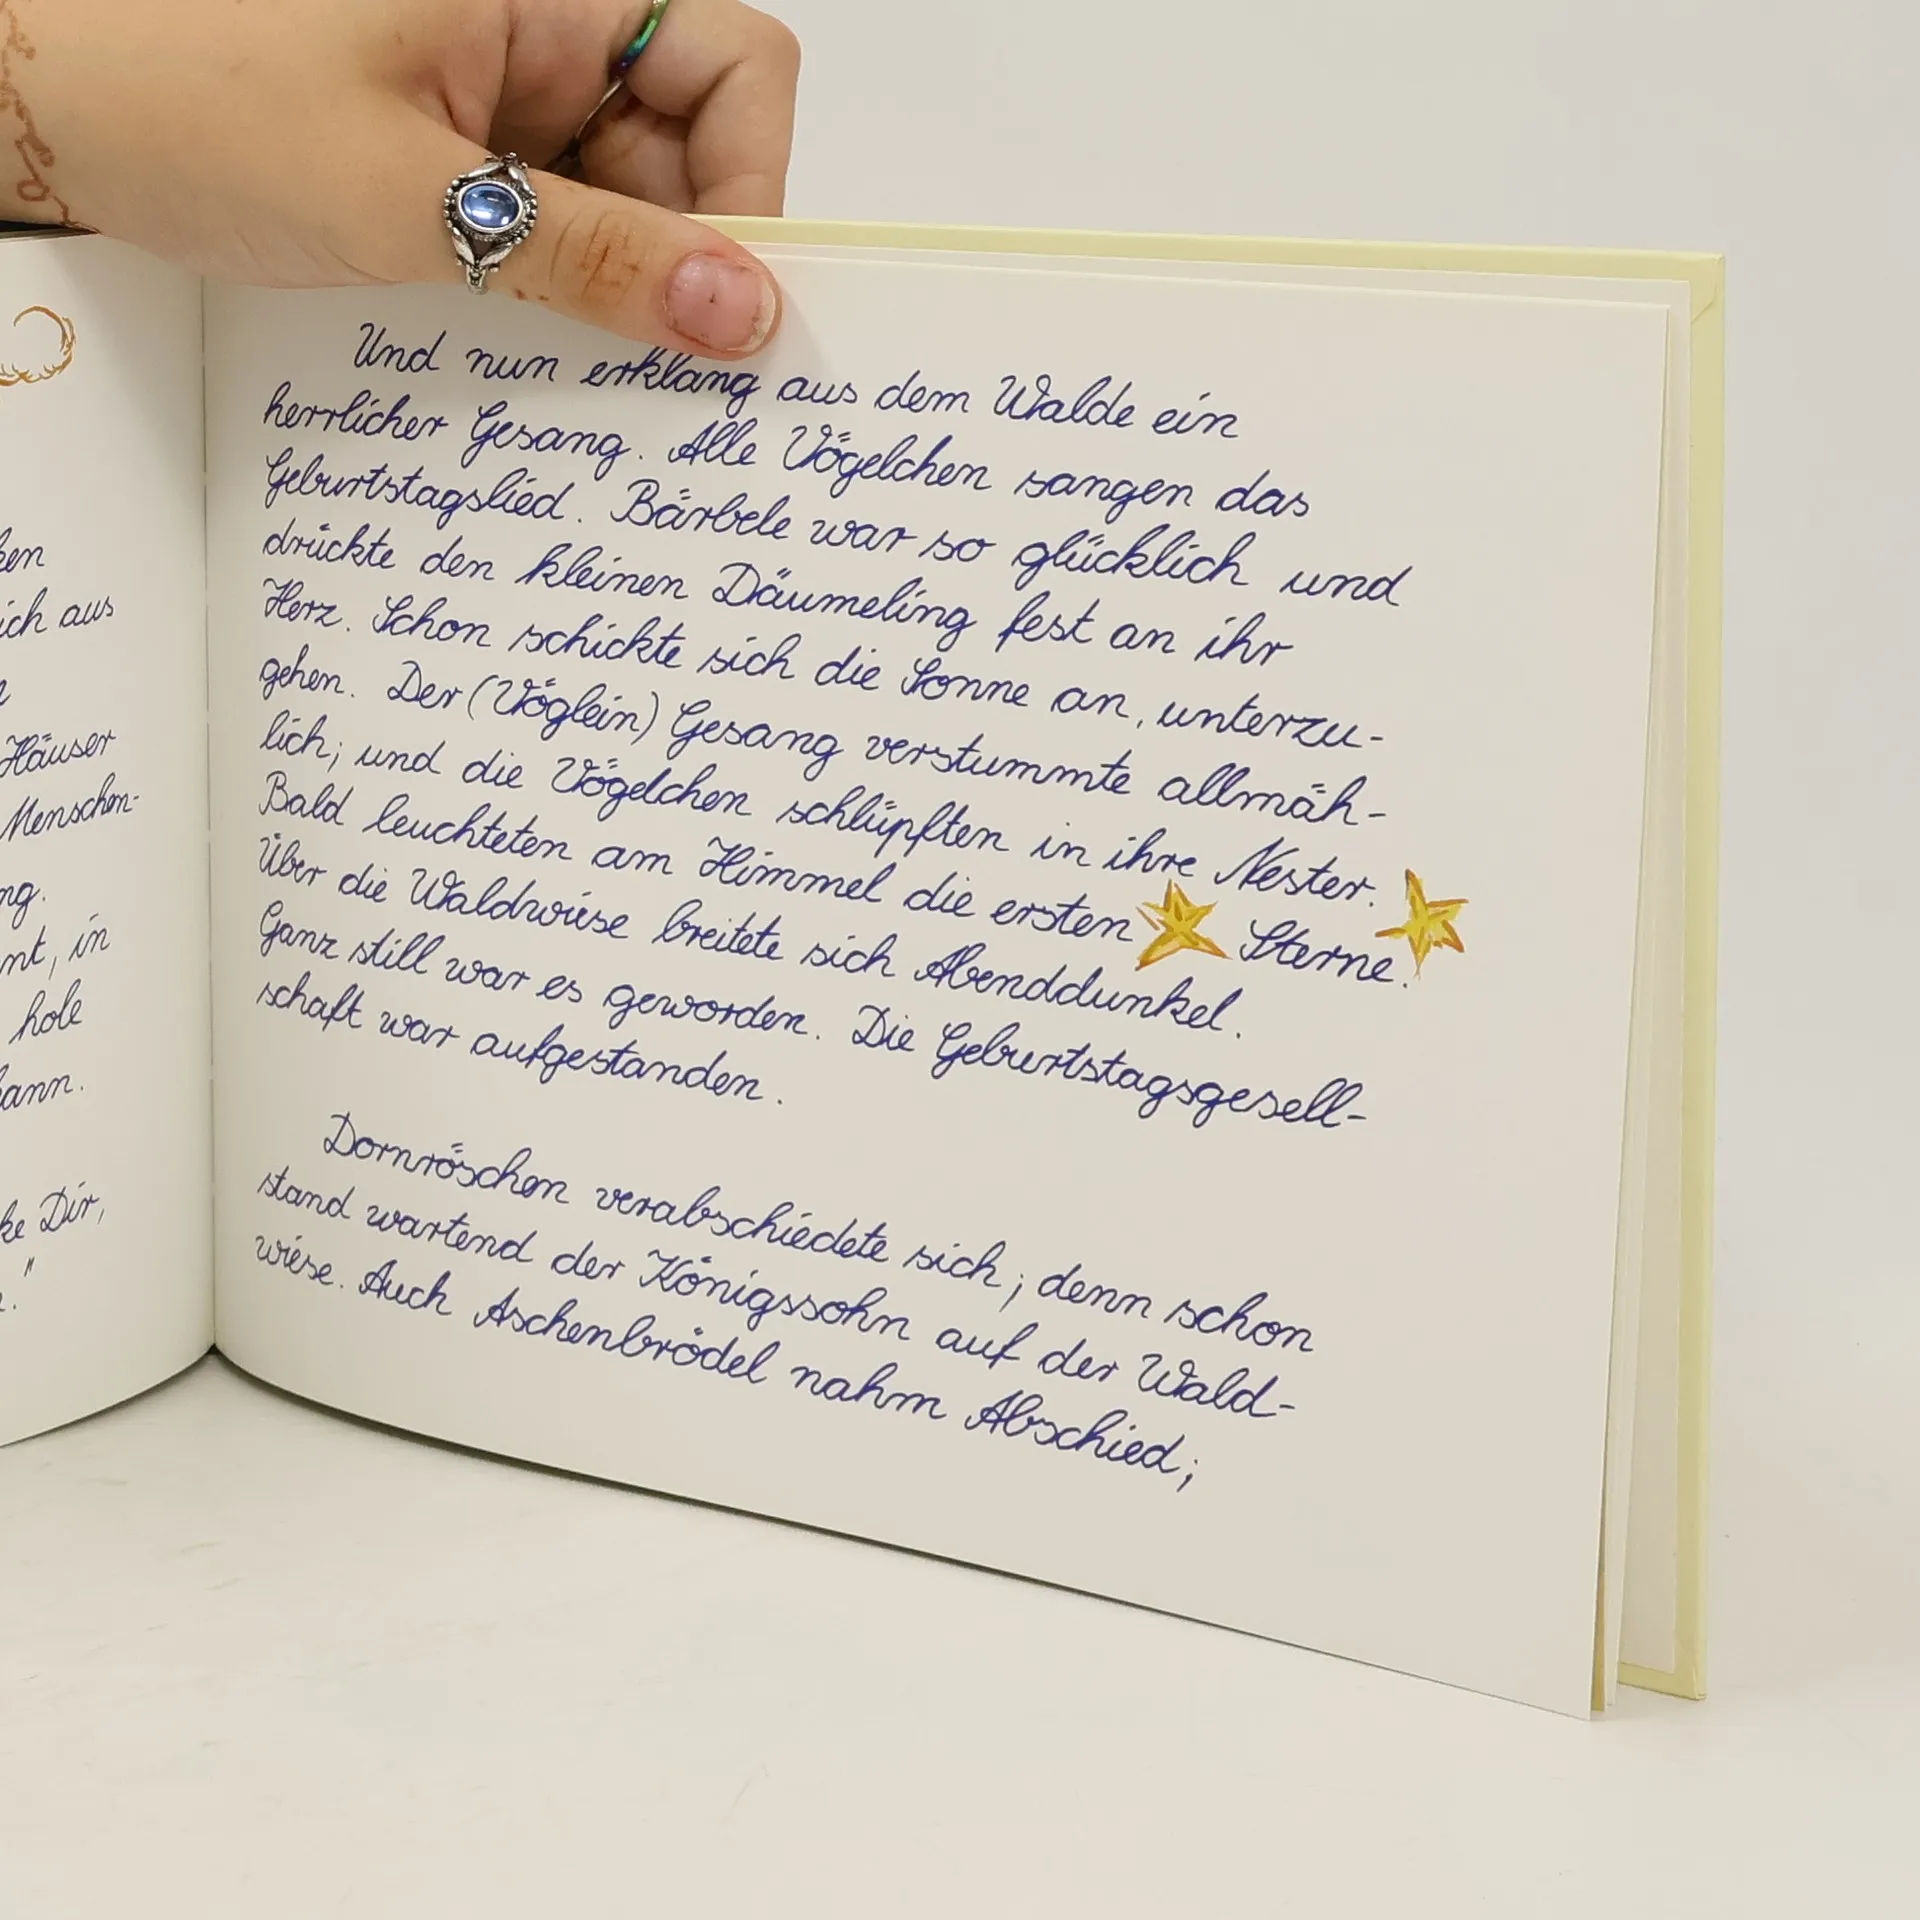 ich aus
Häuser
Menschen-
in
hole
Dir,
Und nun erklang aus dem Walde ein
herrlicher Gesang. Alle Vögelchen sangen das
Geburtstagslied. Bärbele war so glücklich und
drückte den kleinen Däumeling fest an ihr
Herz. Schon schickte sich die Sonne an, unterzu-
gehen. Der (Vöglein) Gesang verstummte allmäh-
lich; und die Vögelchen schlüpften in ihre Nester.
Bald leuchteten am Himmel die ersten Sterne.
Über die Waldwiese breitete sich Abenddunkel.
Ganz still war es geworden. Die Geburtstagsgesell-
schaft war aufgestanden.
Dornröschen verabschiedete sich; denn schon
stand wartend der Königssohn auf der Wald-
wiese. Auch Aschenbrödel nahm Abschied;